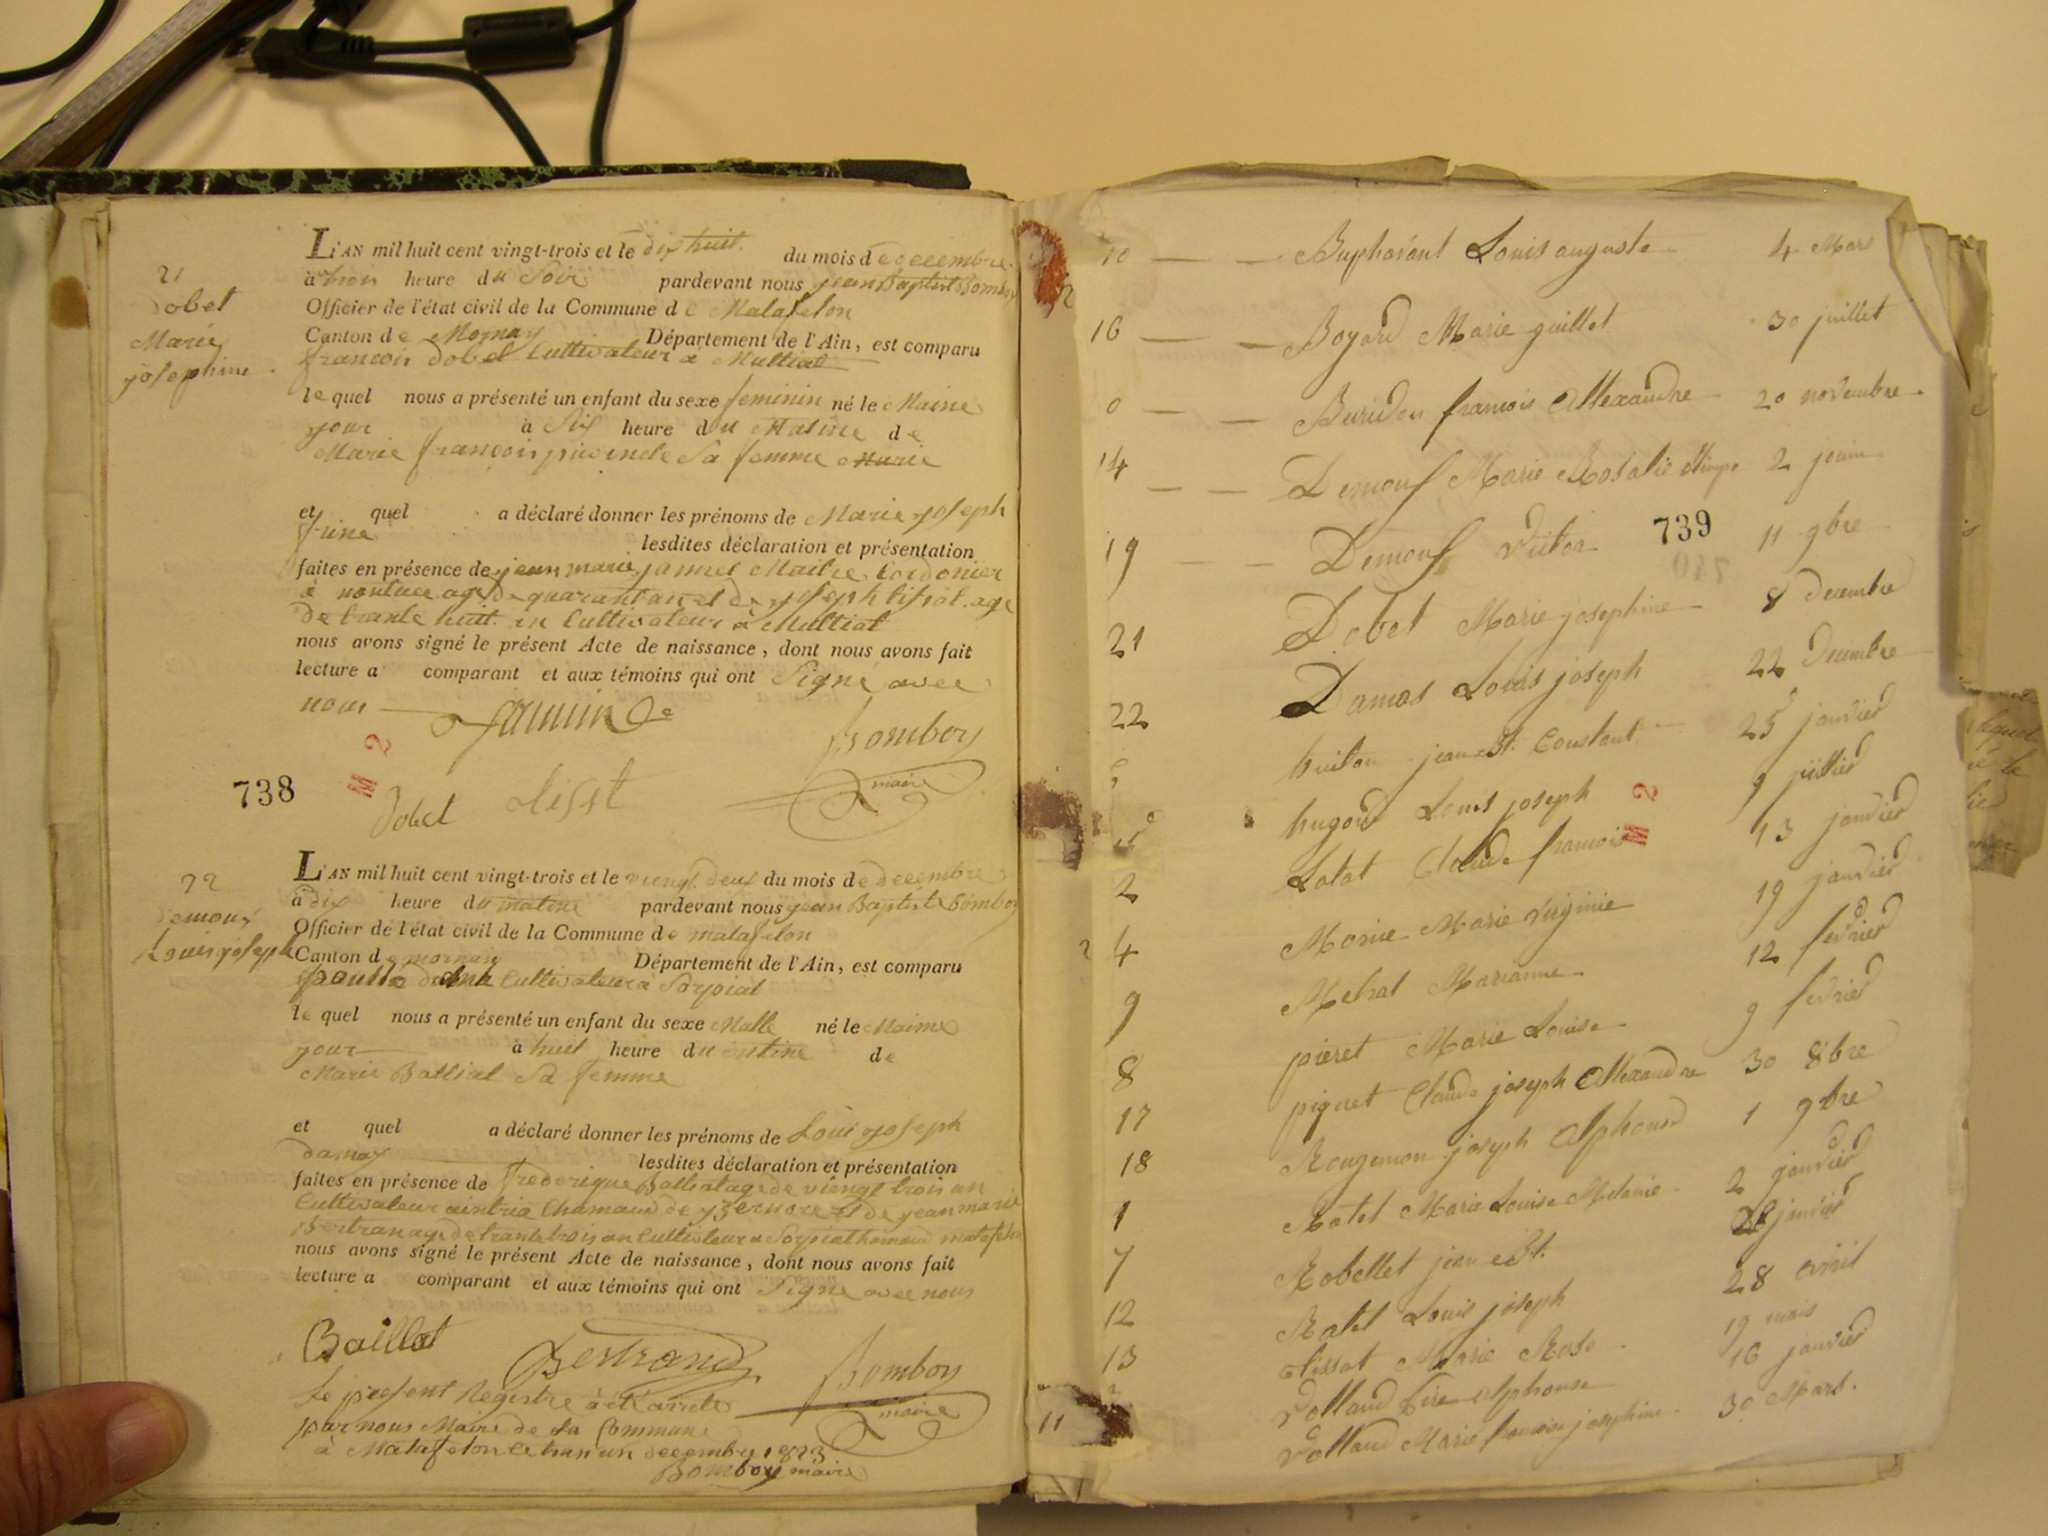 21
Dobet
Marie
josephine
L'AN mil huit cent vingt-trois et le dix huit du mois de decembre
à trois heure du Soir pardevant nous jean Baptist Bomboy
Officier de l'état civil de la Commune de Matafelon
Canton de Mornay Département de l'Ain, est comparu
francois Dobet Cultivateur a Multiat
le quel nous a présenté un enfant du sexe feminin né le Maime
jour à Six heure du Matine de
Marie françois Sa femme Marie
et quel a déclaré donner les prénoms de Marie joseph
frine lesdites déclaration et présentation
faites en présence de jean marie Maitre Cordonier
à age de quarantan et de joseph tissot age
De trante huit an Cultivateur à Multiat
nous avons signé le présent Acte de naissance, dont nous avons fait
lecture a comparant et aux témoins qui ont Signé avec
nous
Bomboy
maire
M 2
738
Dobet tissot
22
Louis joseph
L'AN mil huit cent vingt-trois et le viengt deux du mois de decembre
à dix heure du matine pardevant nous jean Baptiste Bomboy
Officier de l'état civil de la Commune de matafelon
Canton de mornay Département de l'Ain, est comparu
Cultivateur à Sorpiat
le quel nous a présenté un enfant du sexe Malle né le Maime
jour à huit heure du matine de
Marie Balliat Sa femme
et quel a déclaré donner les prénoms de Louis joseph
damas lesdites déclaration et présentation
faites en présence de frederique Balliat age de viengt trois an
Cultivateur de et de jean marie
Bertran age de trante trois an Cultivateur a Sorpiat
nous avons signé le présent Acte de naissance, dont nous avons fait
lecture a comparant et aux témoins qui ont Signe avec nous
Baillat
Bertrand
Bomboy
maire
Le present Registre à été arreté
par nous Maire de la Commune
à Matafelon le tran un decembre 1823
Bomboy maire
10 Louis auguste 4 Mars
16 Boyard Marie guillet 30 juillet
Buridon francois Allexandre 20 novembre
14 Demouf Marie Rosalie 2 juin
19 Demouf Victor 11 9bre
739
21 Dobet Marie josephine 8 decembre
22 Damas Louis joseph 22 Decembre
huiton jean Bt. Constant 25 janvier
hugoud Louis joseph 9
M 2
2 Lalat Claude francois 13 janvier
4 Marie Virginie 19 janvier
9 Marianne 12 fevrier
8 pieret Marie Louise 9 fevrier
17 piquet Claude joseph Allexandre 30 8bre
18 Rougemon joseph Alphonse 1 9bre
1 Ratel Marie Louise Melanie 2 janvier
7 Robellet jean Bt. 28 janvier
12 Ratel Louis joseph 28 avril
13 tissot Marie Rose 19 mais
Volland Alphonse 16 janvier
11 Volland Marie francoise josephine 30 Mars.